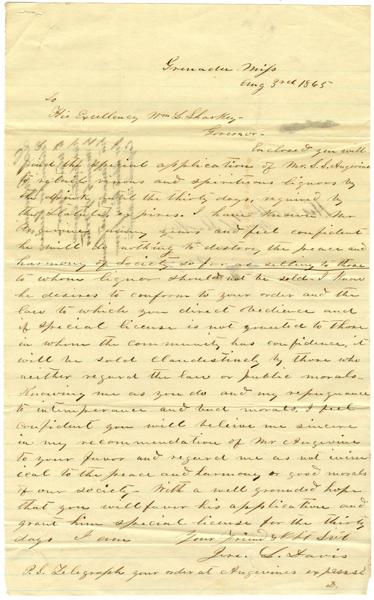 Grenada Miss
Aug 3rd 1865
To
His Excellency Wm L. Sharkey
Governor
Enclosed you will
find the special application of Mr. S. S. Angevine
to retail vinous and spirituous liquors by
the drink until the thirty days, required by
the Statute expires. I have known Mr
Angevine many years and feel confident
he will do nothing to destroy the peace and
harmony of Society so far as selling to those
to whom liquor should not be sold. I know
he desires to conform to your order and the
law to which you direct obedience and
if special license is not granted to those
in whom the community has confidence, it
will be sold clandestinely by those who
neither regard the law or public morals.
Knowing me as you do and my repugnance
to intemperance and bad morals, I feel
confident you will believe me sincere
in my recommendation of Mr Angevine
to your favor and regard me as not inimi
cal to the peace and harmony or good morals
of our society. With a well grounded hope
that you will favor his application and
grant him special license for the thirty
days I am Your Friend & Obt Svt
Jno. L. Davis
P.S. Telegraph your order at Angevines expense
D.